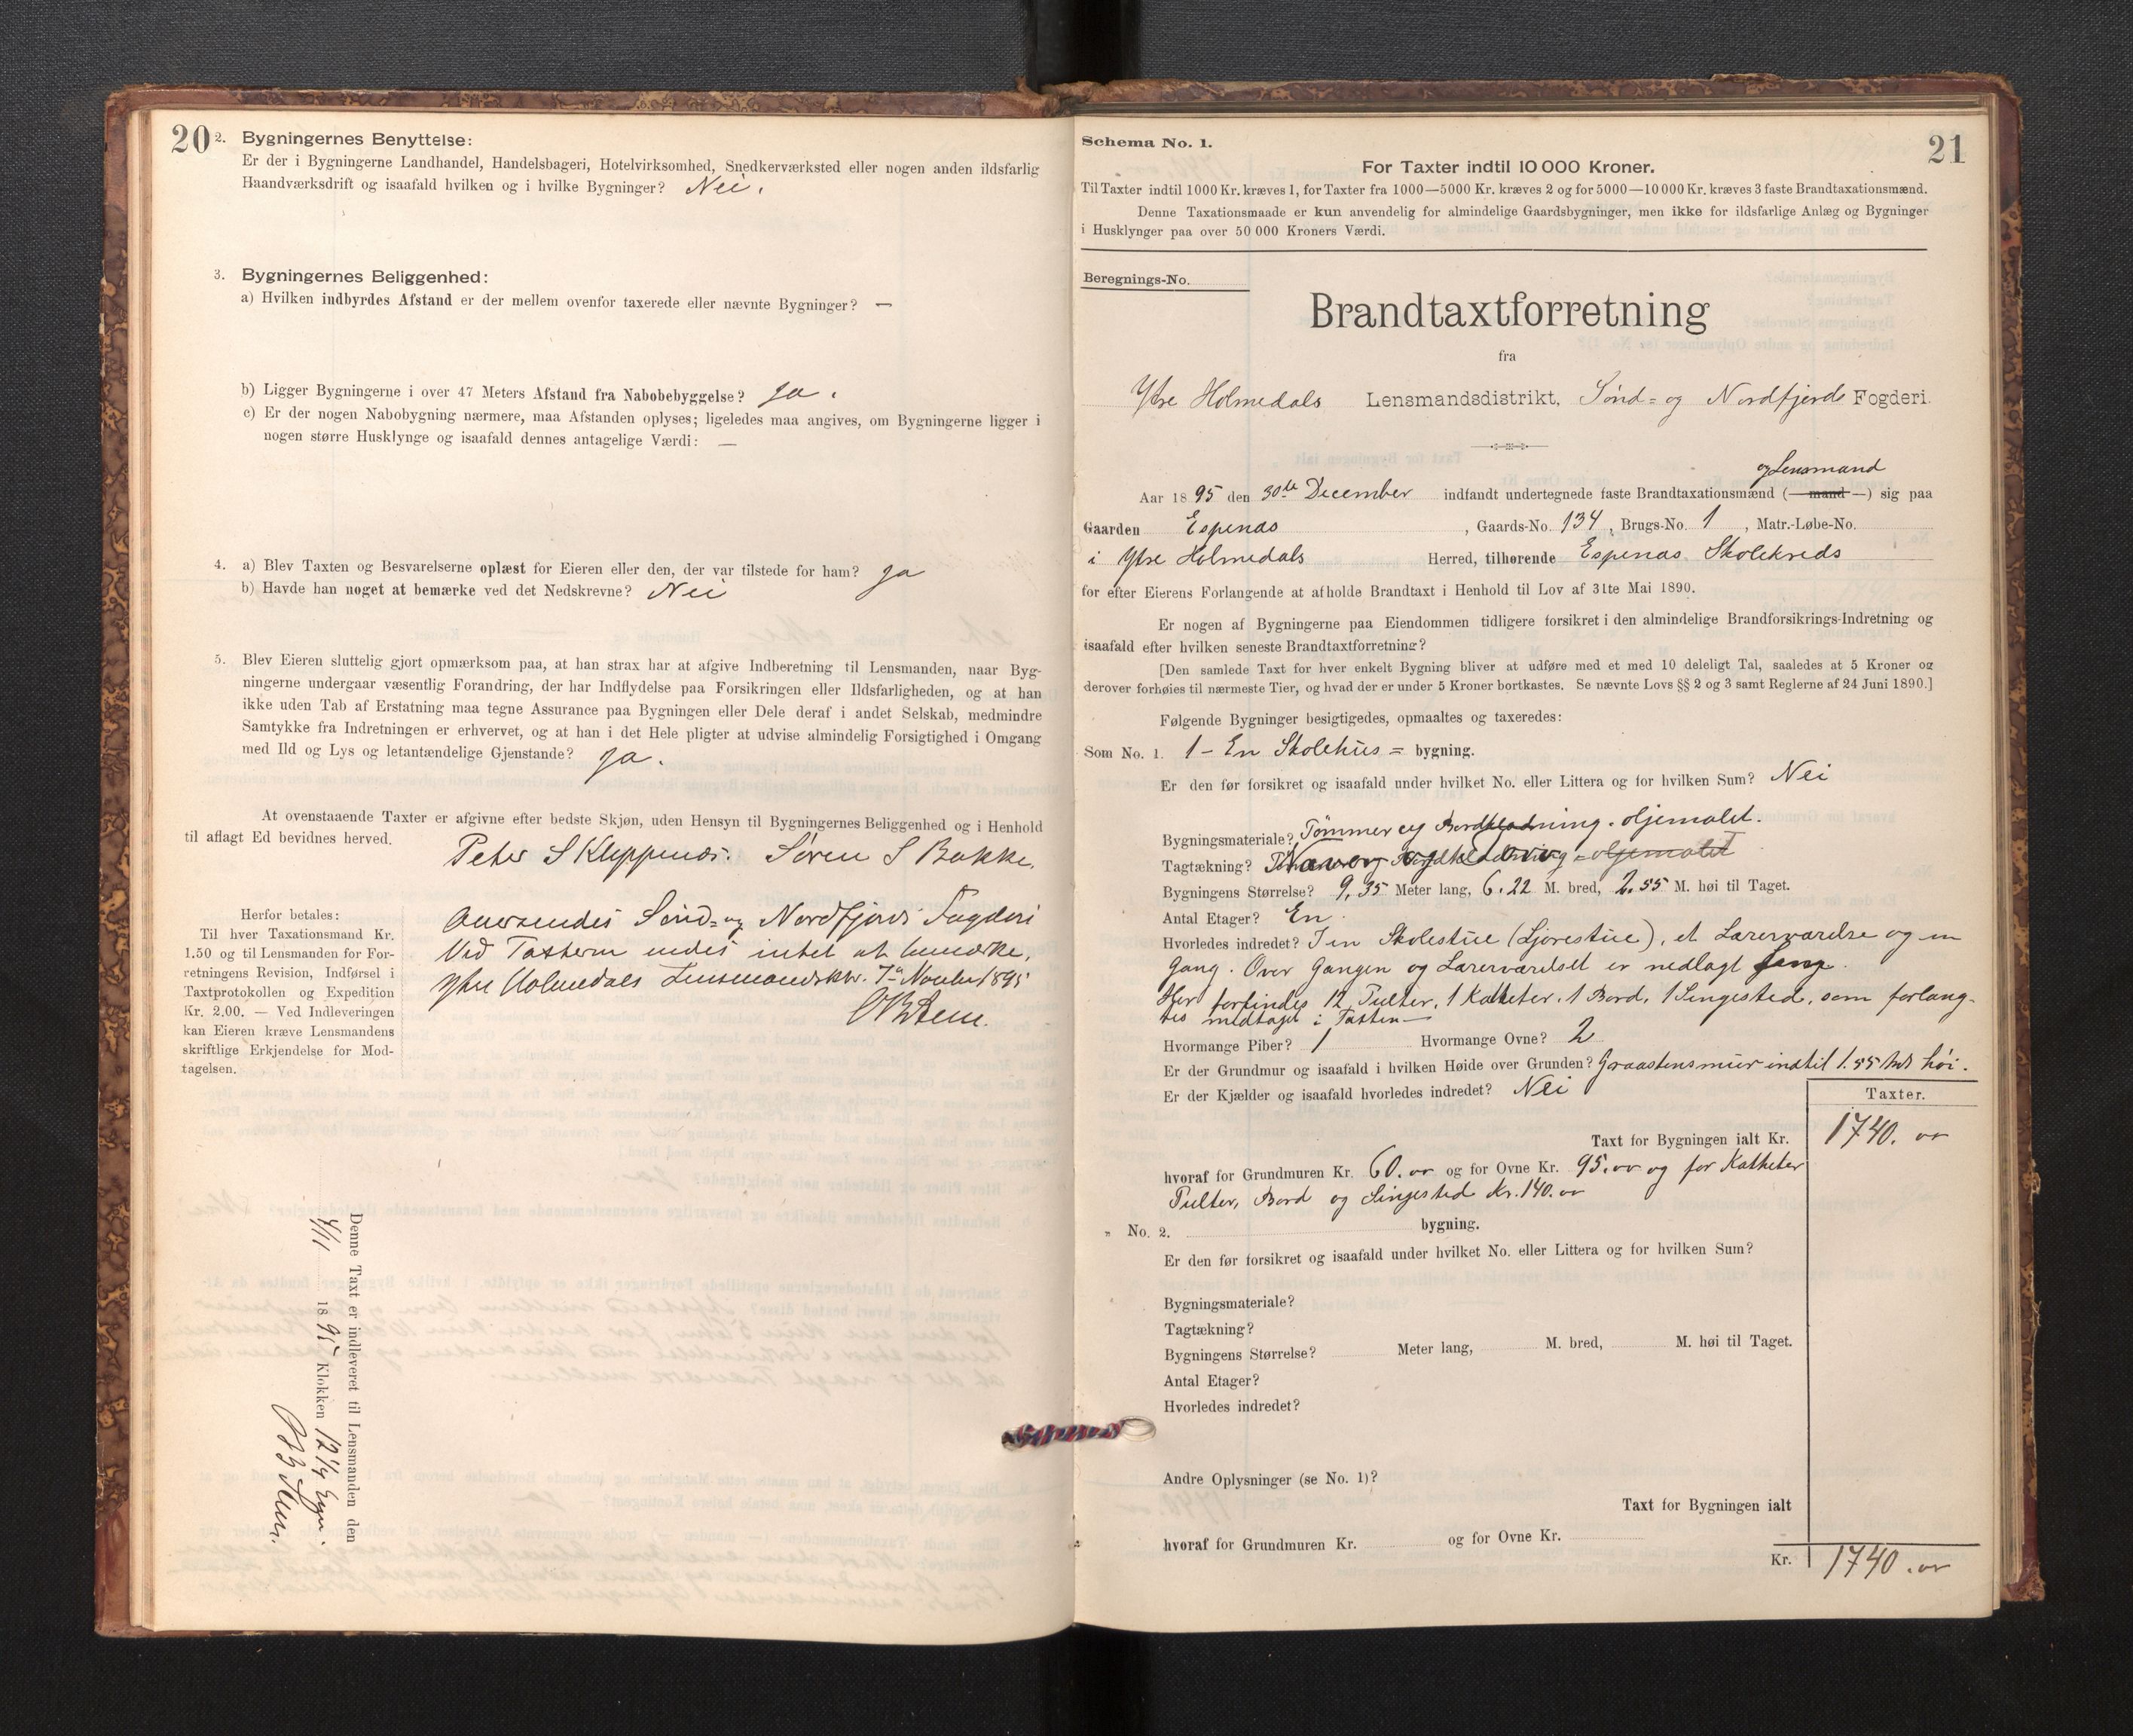 20
2. Bygningernes Benyttelse:
Er der i Bygningerne Landhandel, Handelsbageri, Hotelvirksomhed, Snedkerværksted eller nogen anden ildsfarlig
Haandværksdrift og isaafald hvilken og i hvilke Bygninger? Nei.
3. Bygningernes Beliggenhed:
a) Hvilken indbyrdes Afstand er der mellem ovenfor taxerede eller nævnte Bygninger? —
b) Ligger Bygningerne i over 47 Meters Afstand fra Nabobebyggelse? Ja.
c) Er der nogen Nabobygning nærmere, maa Afstanden oplyses; ligeledes maa angives, om Bygningerne ligger i
nogen større Husklynge og isaafald dennes antagelige Værdi: —
4. a) Blev Taxten og Besvarelserne oplæst for Eieren eller den, der var tilstede for ham? Ja
b) Havde han noget at bemærke ved det Nedskrevne? Nei
5. Blev Eieren sluttelig gjort opmærksom paa, at han strax har at afgive Indberetning til Lensmanden, naar Byg-
ningerne undergaar væsentlig Forandring, der har Indflydelse paa Forsikringen eller Ildsfarligheden, og at han
ikke uden Tab af Erstatning maa tegne Assurance paa Bygningen eller Dele deraf i andet Selskab, medmindre
Samtykke fra Indretningen er erhvervet, og at han i det Hele pligter at udvise almindelig Forsigtighed i Omgang
med Ild og Lys og letantændelige Gjenstande? Ja.
At ovenstaaende Taxter er afgivne efter bedste Skjøn, uden Hensyn til Bygningernes Beliggenhed og i Henhold
til aflagt Ed bevidnes herved.
Peter S Kleppenæs. Søren S Bakke.
Herfor betales:
Til hver Taxationsmand Kr.
1.50 og til Lensmanden for For-
retningens Revision, Indførsel i
Taxtprotokollen og Expedition
Kr. 2.00. — Ved Indleveringen
kan Eieren kræve Lensmandens
skriftlige Erkjendelse for Mod-
tagelsen.
Oversendes Sønd- og Nordfjords Fogderi
Ved Taxterne endes intet at bemærke.
Ytre Holmedals Lensmandsktr. 7de 1895
Denne Taxt er indleveret til Lensmanden den
4/11 1895 Klokken 12 1/4
21
Schema No. 1.
For Taxter indtil 10 000 Kroner.
Til Taxter indtil 1000 Kr. kræves 1, for Taxter fra 1000—5000 Kr. kræves 2 og for 5000—10 000 Kr. kræves 3 faste Brandtaxationsmænd.
Denne Taxationsmaade er kun anvendelig for almindelige Gaardsbygninger, men ikke for ildsfarlige Anlæg og Bygninger
i Husklynger paa over 50 000 Kroners Værdi.
Beregnings-No.
Brandtaxtforretning
fra
Ytre Holmedals Lensmandsdistrikt, Sønd- og Nordfjords Fogderi.
og Lensmand
Aar 1895 den 30te December indfandt undertegnede faste Brandtaxationsmænd (— mand —) sig paa
Gaarden Espenæs, Gaards-No. 134, Brugs-No. 1, Matr.-Løbe-No.
i Ytre Holmedals Herred, tilhørende Espenæs Skolekreds
for efter Eierens Forlangende at afholde Brandtaxt i Henhold til Lov af 31te Mai 1890.
Er nogen af Bygningerne paa Eiendommen tidligere forsikret i den almindelige Brandforsikrings-Indretning og
isaafald efter hvilken seneste Brandtaxtforretning?
[Den samlede Taxt for hver enkelt Bygning bliver at udføre med et med 10 deleligt Tal, saaledes at 5 Kroner og
derover forhøies til nærmeste Tier, og hvad der er under 5 Kroner bortkastes. Se nævnte Lovs §§ 2 og 3 samt Reglerne af 24 Juni 1890.]
Følgende Bygninger besigtigedes, opmaaltes og taxeredes:
Som No. 1. 1 - En Skolehus = bygning.
Er den før forsikret og isaafald under hvilket No. eller Littera og for hvilken Sum? Nei
Bygningsmateriale? Tømmer og Bordklædning. oljemalet.
Tagtækning? Næver og Torv oljemalet
Bygningens Størrelse? 9,35 Meter lang, 6.22 M. bred, 2.55 M. høi til Taget.
Antal Etager? En.
Hvorledes indredet? I en Skolestue (Ljorestue), et Lærerværelse og en
Gang. Over Gangen og Lærerværelset er nedlagt
Her forfindes 12 Pulter, 1 Katheter, 1 Bord, 1 Sengested, som forlang-
tes medtaget i Taxten—
Hvormange Piber? 1 Hvormange Ovne? 2
Er der Grundmur og isaafald i hvilken Høide over Grunden? Graastensmur indtil 1.55 Mtr høi.
Er der Kjælder og isaafald hvorledes indredet? Nei
Taxter.
Taxt for Bygningen ialt Kr. 1740.00
hvoraf for Grundmuren Kr. 60.00 og for Ovne Kr. 95.00 og for Katheter
Pulter, Bord og Sengested Kr. 140.00
" No. 2. bygning.
Er den før forsikret og isaafald under hvilket No. eller Littera og for hvilken Sum?
Bygningsmateriale?
Tagtækning?
Bygningens Størrelse? Meter lang, M. bred, M. høi til Taget.
Antal Etager?
Hvorledes indredet?
Andre Oplysninger (se No. 1)?
Taxt for Bygningen ialt
hvoraf for Grundmuren Kr. og for Ovne Kr.
Kr. 1740.00